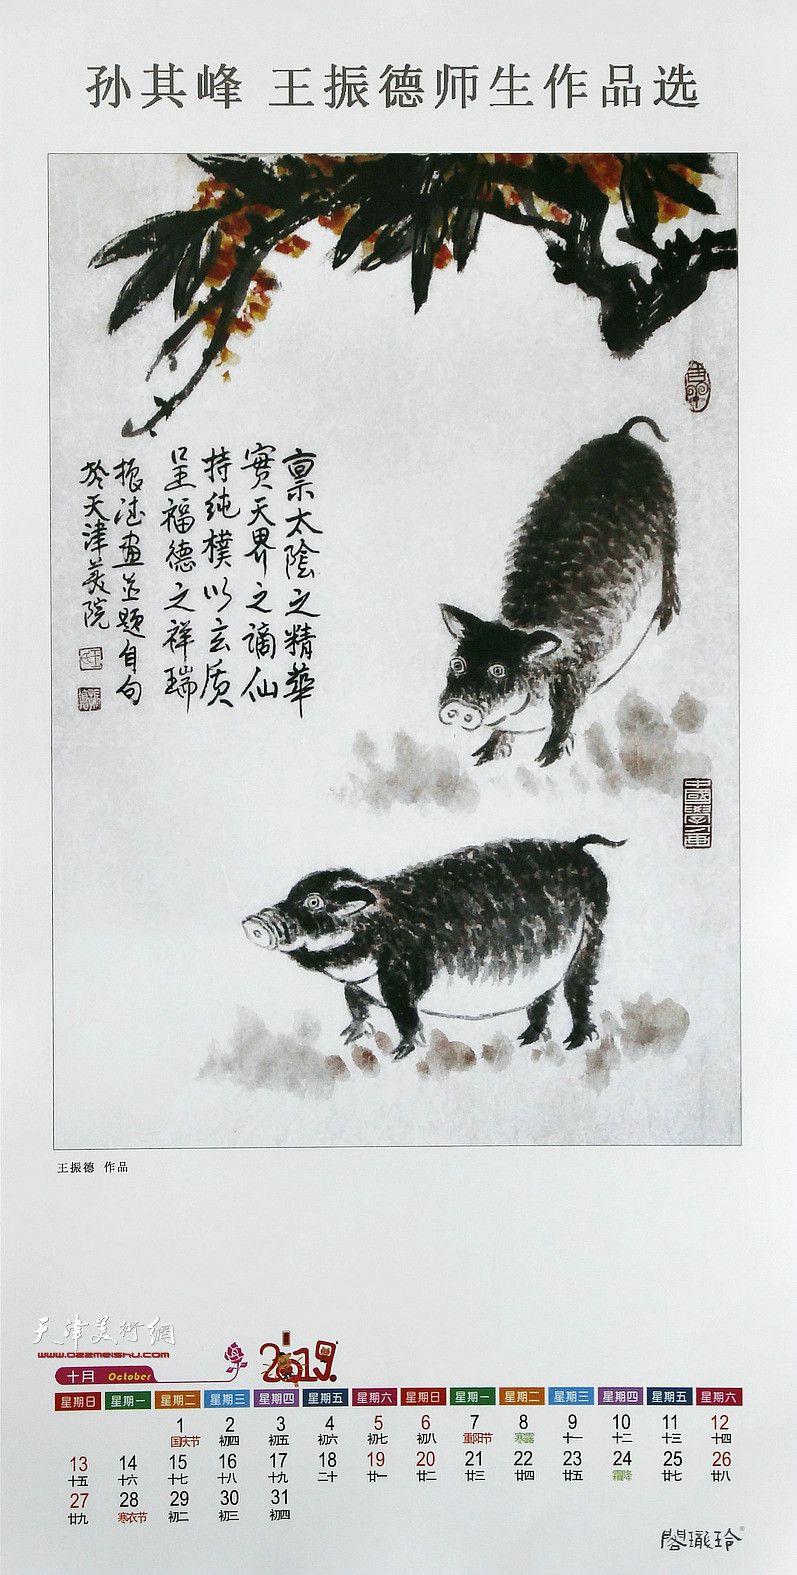 孙其峰 王振德师生作品选
禀太陰之精華
實天界之谪仙
持纯樸以玄质
呈福德之祥瑞
振德画并题自句
於天津美院
中國
王振德 作品
天津美術網
www.022meishu.com
十月 October 2019
星期日 星期一 星期二 星期三 星期四 星期五 星期六 星期日 星期一 星期二 星期三 星期四 星期五 星期六
1 2 3 4 5 6 7 8 9 10 11 12
国庆节 初四 初五 初六 初七 初八 重阳节 寒露 十一 十二 十三 十四
13 14 15 16 17 18 19 20 21 22 23 24 25 26
十五 十六 十七 十八 十九 二十 廿一 廿二 廿三 廿四 廿五 霜降 廿七 廿八
27 28 29 30 31
廿九 寒衣节 初二 初三 初四
閣瓏玲